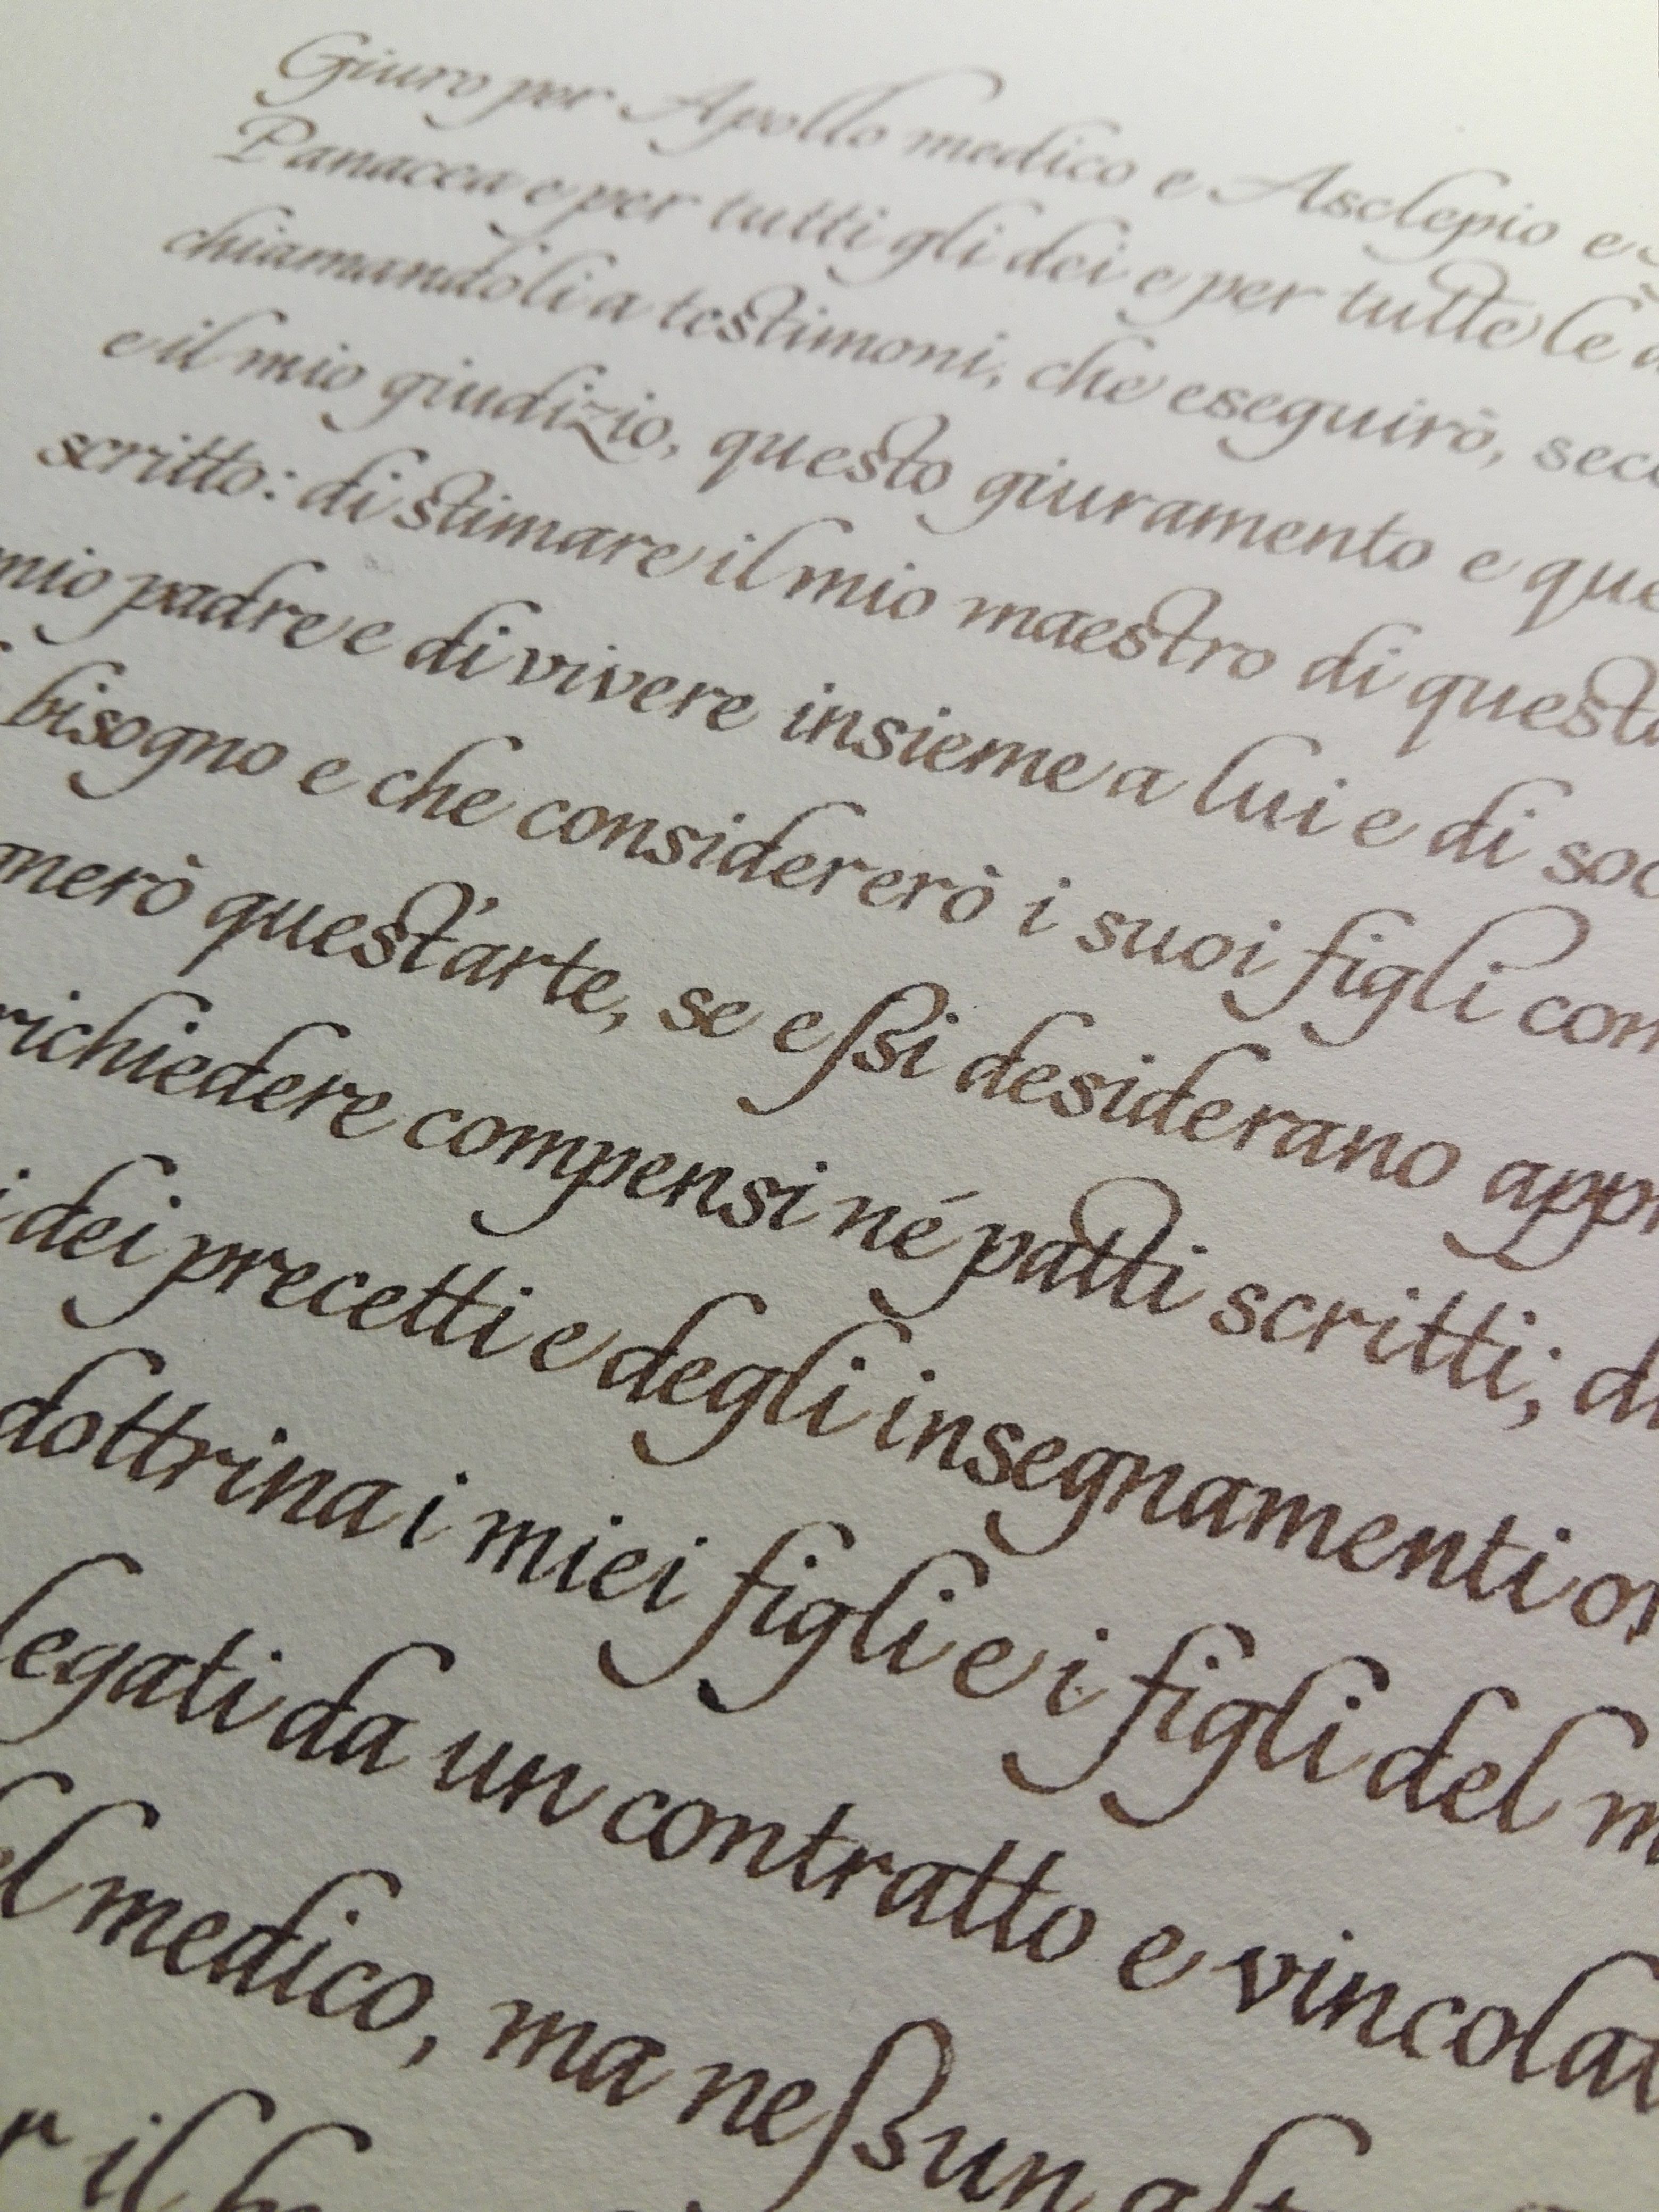 Giuro per Apollo medico e Asclepio e
Panacea e per tutti gli dei e per tutte le
chiamandoli a testimoni, che eseguirò, sec
e il mio giudizio, questo giuramento e que
scritto: di stimare il mio maestro di questo
mio padre e di vivere insieme a lui e di soc
bisogno e che considererò i suoi figli com
nerò quest'arte, se essi desiderano appr
richiedere compensi né patti scritti; di
dei precetti e degli insegnamenti or
dottrina i miei figli e i figli del m
legati da un contratto e vincolat
el medico, ma nessun alt
r il